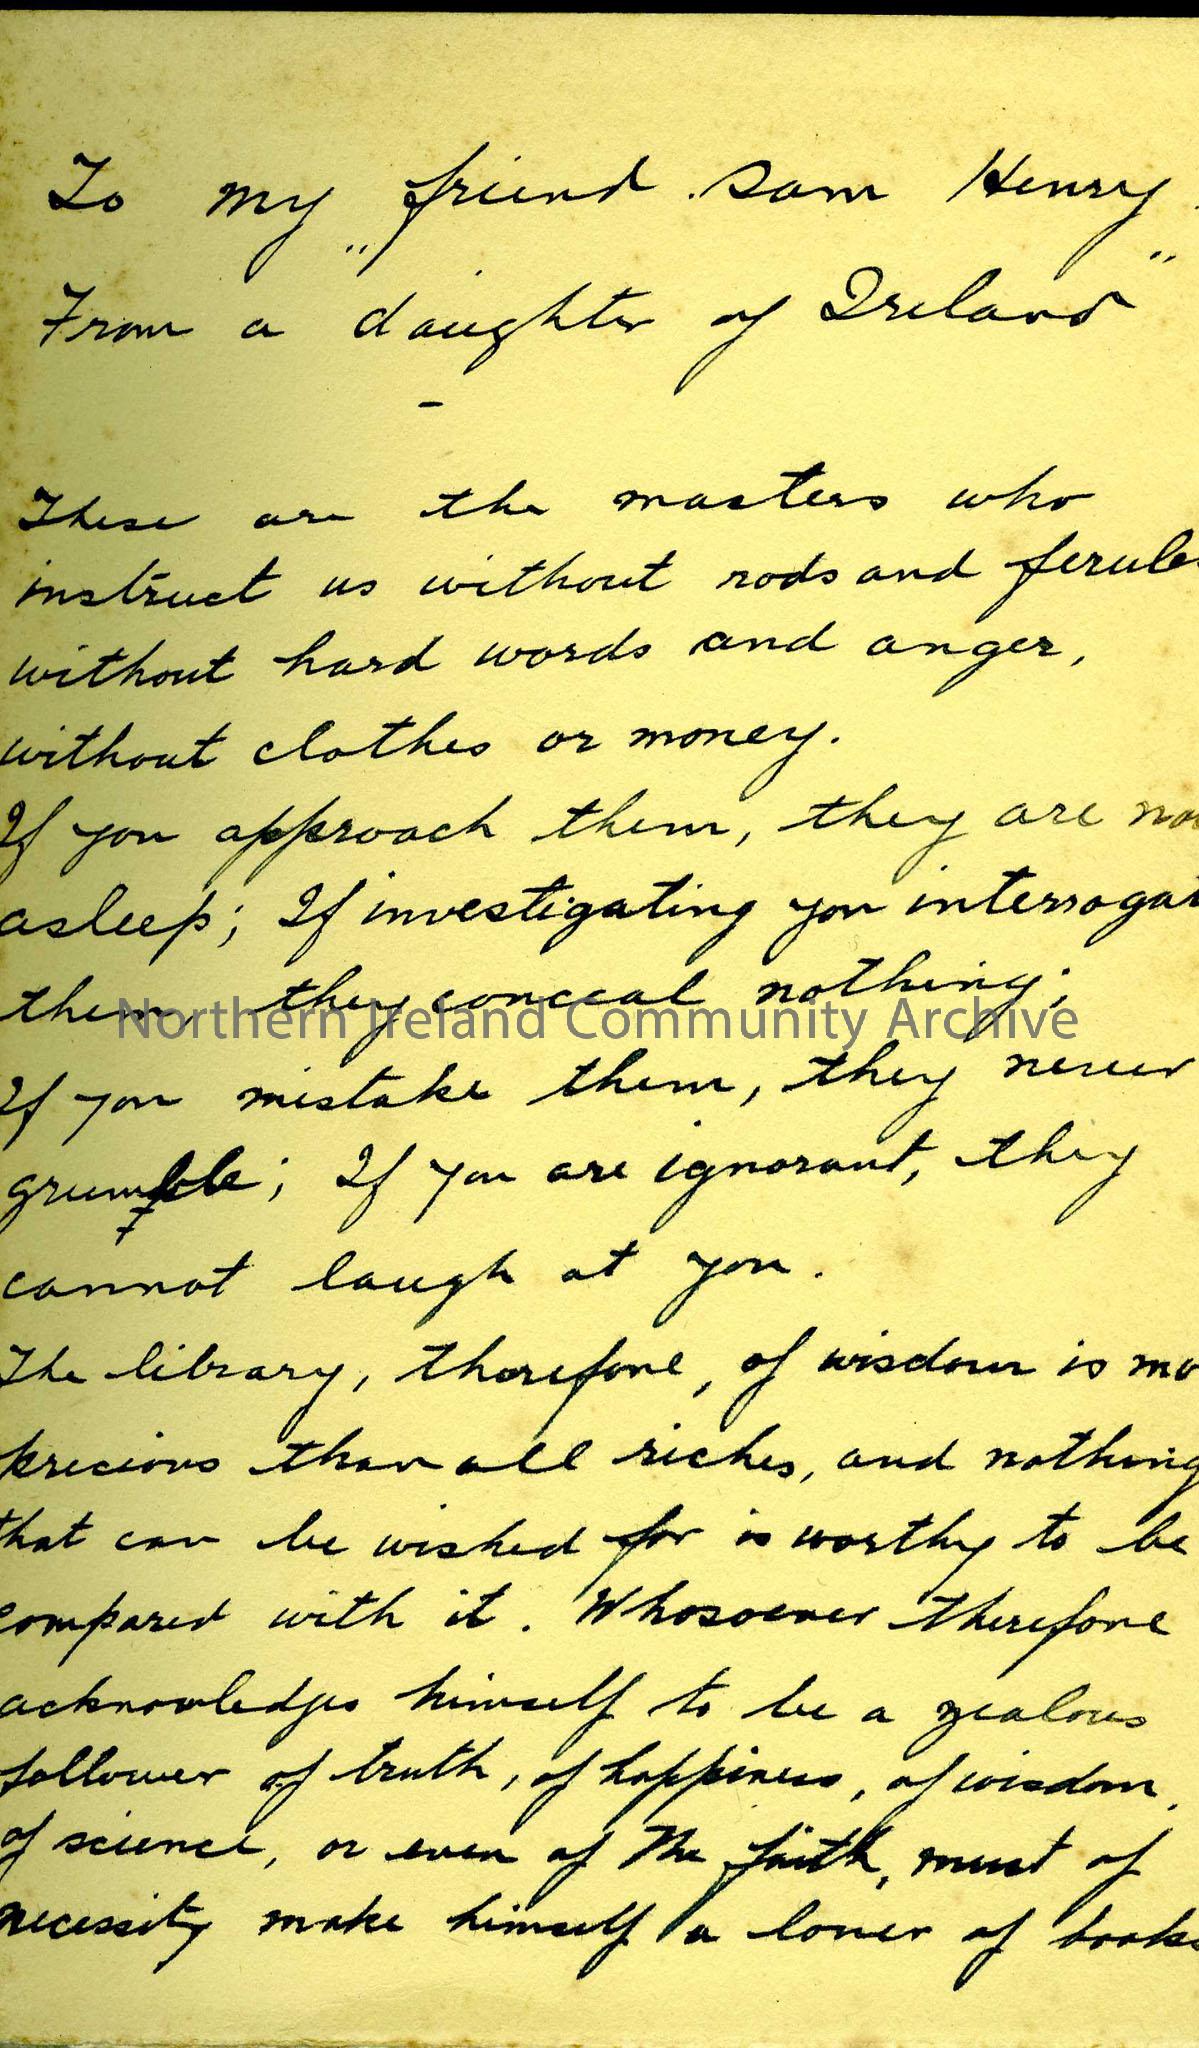 To my friend Sam Henry.
From a "daughter of Ireland"
-
These are the masters who
instruct us without rods and ferules
without hard words and anger,
without clothes or money.
If you approach them, they are not
asleep; If investigating you interrogat
them, they conceal nothing;
If you mistake them, they never
grumble; If you are ignorant, they
cannot laugh at you.
The library, therefore, of wisdom is mo
precious than all riches, and nothing
that can be wished for is worthy to be
compared with it. Whosoever therefore
acknowledges himself to be a zealous
follower of truth, of happiness, of wisdom,
of science, or even of the faith, must of
necessity make himself a lover of books
Northern Ireland Community Archive